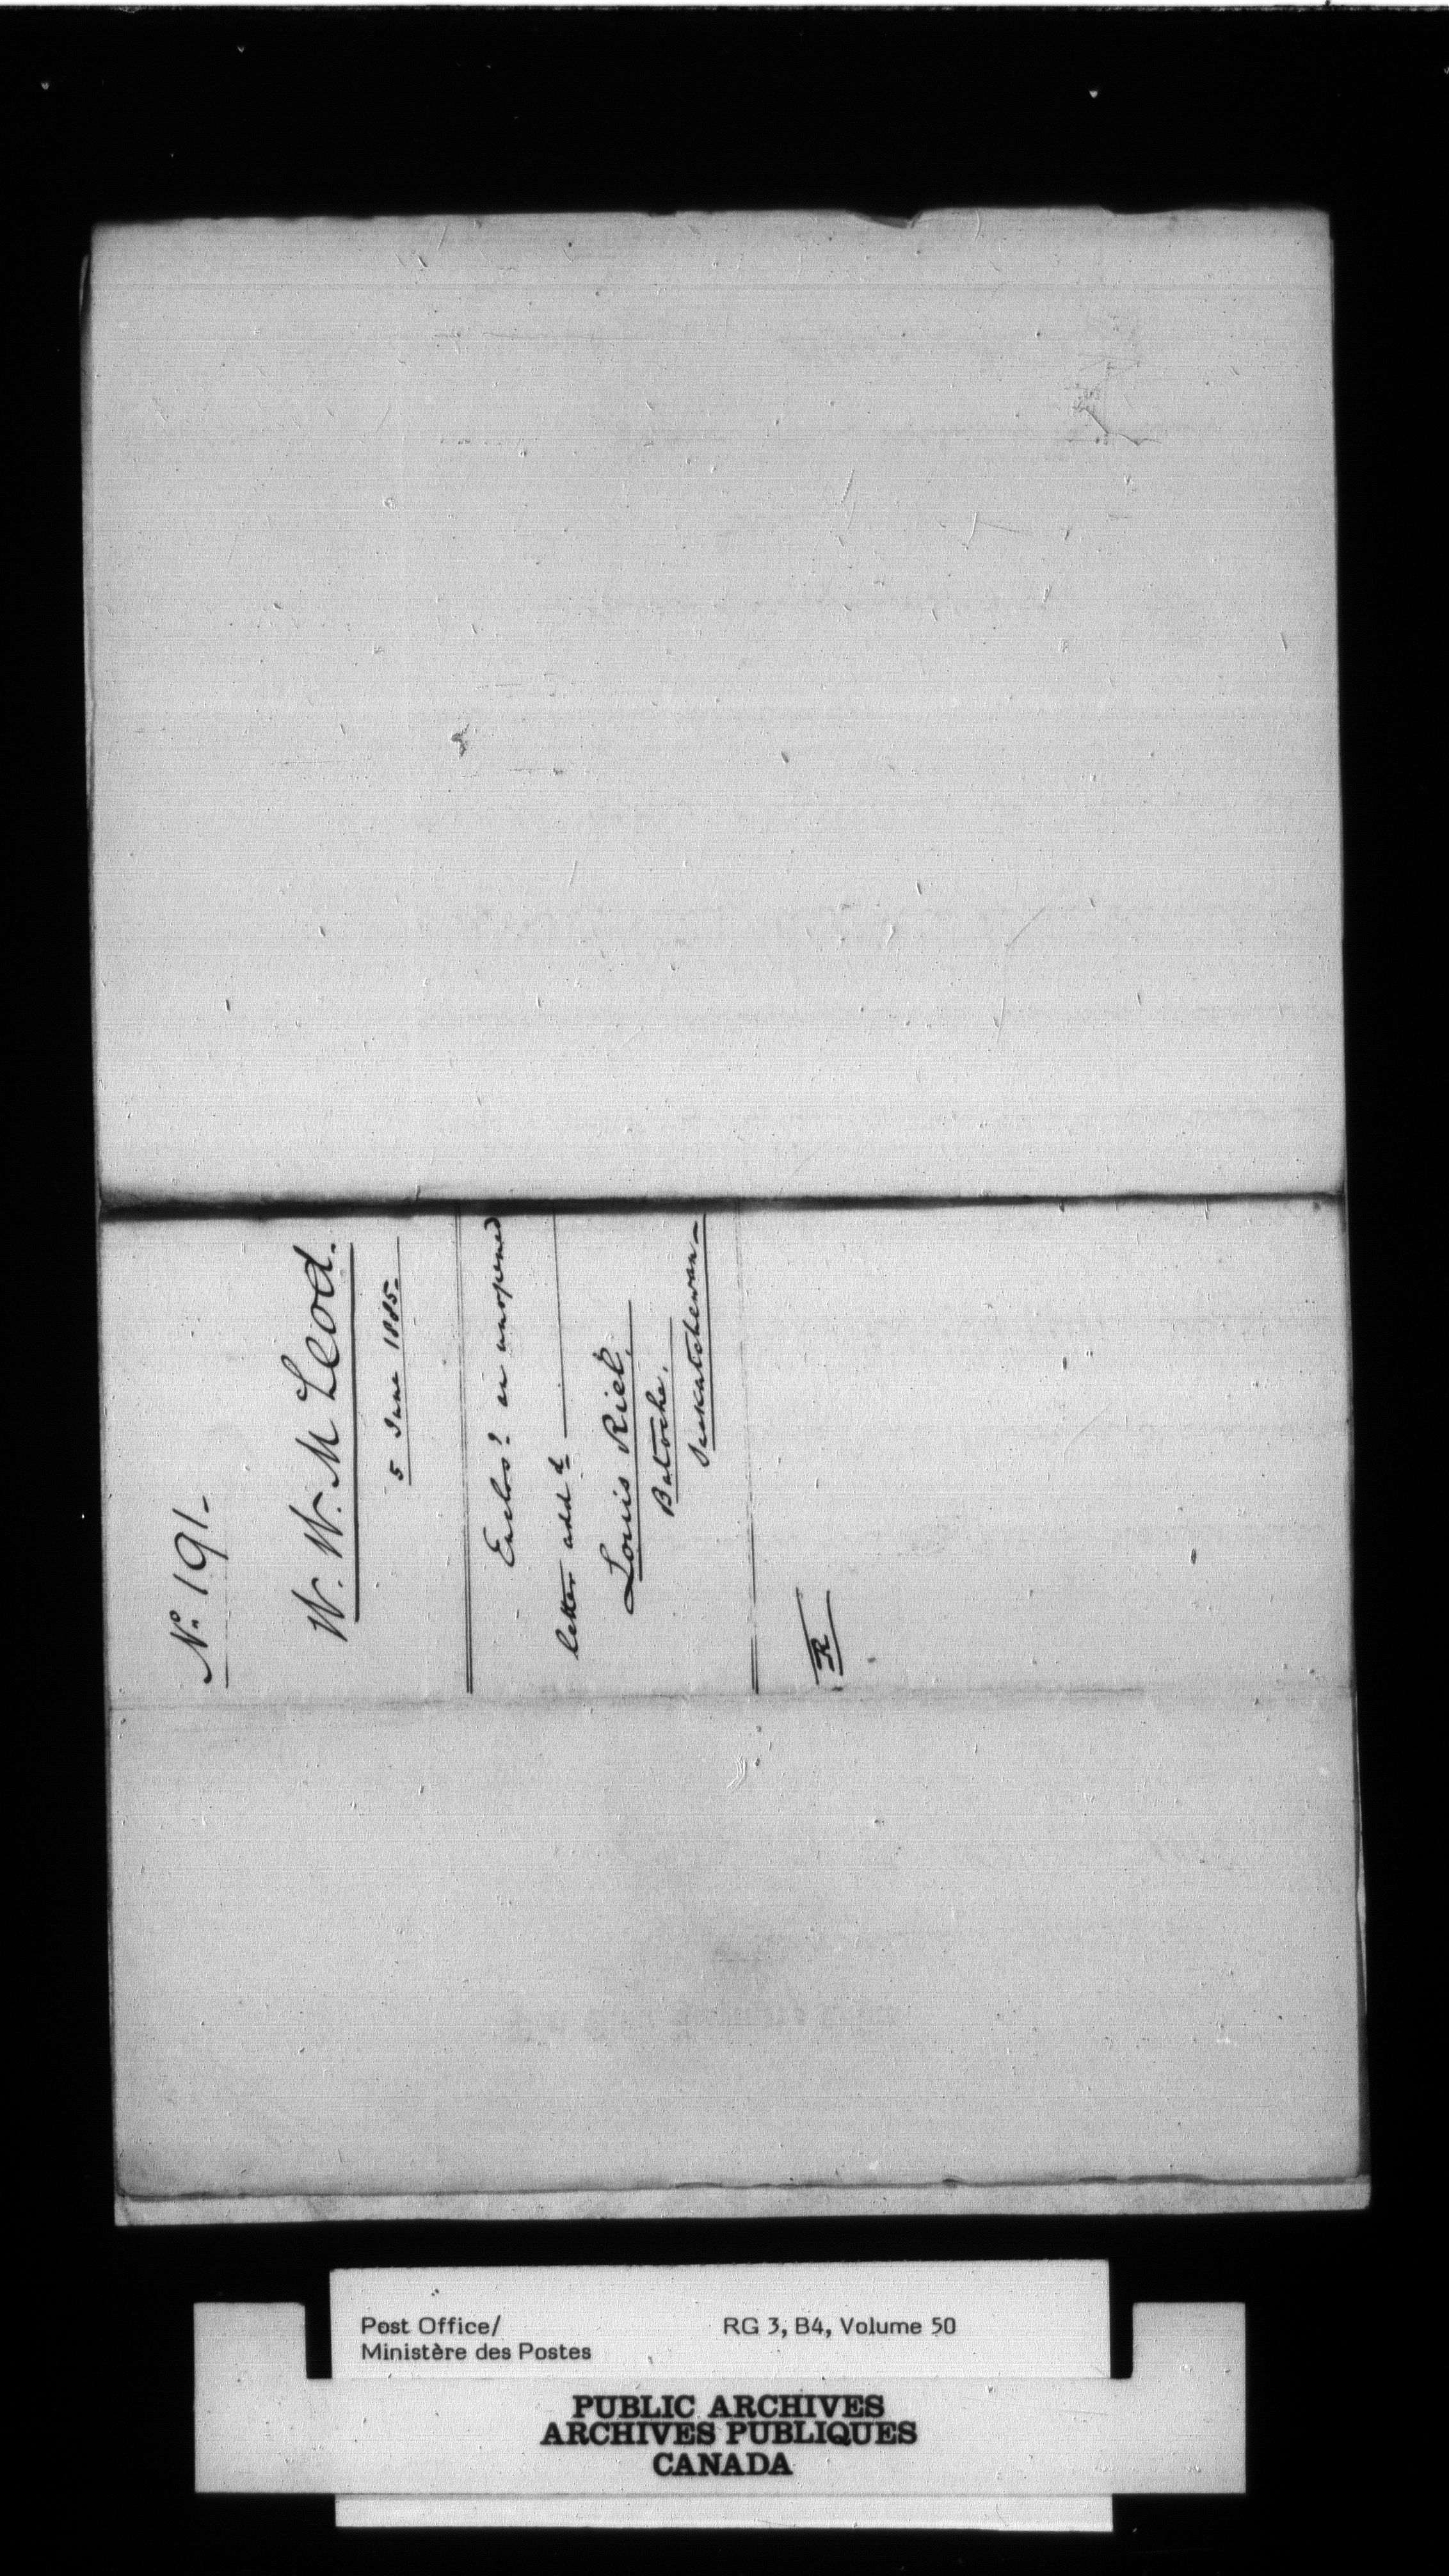 No. 191-
W. W. McLeod.
5 June 1885-
Enclosg an unopened
letter addd
Louis Riel,
Batoche,
Saskatchewan-
R
Post Office/
Ministère des Postes
RG 3, B4, Volume 50
PUBLIC ARCHIVES
ARCHIVES PUBLIQUES
CANADA